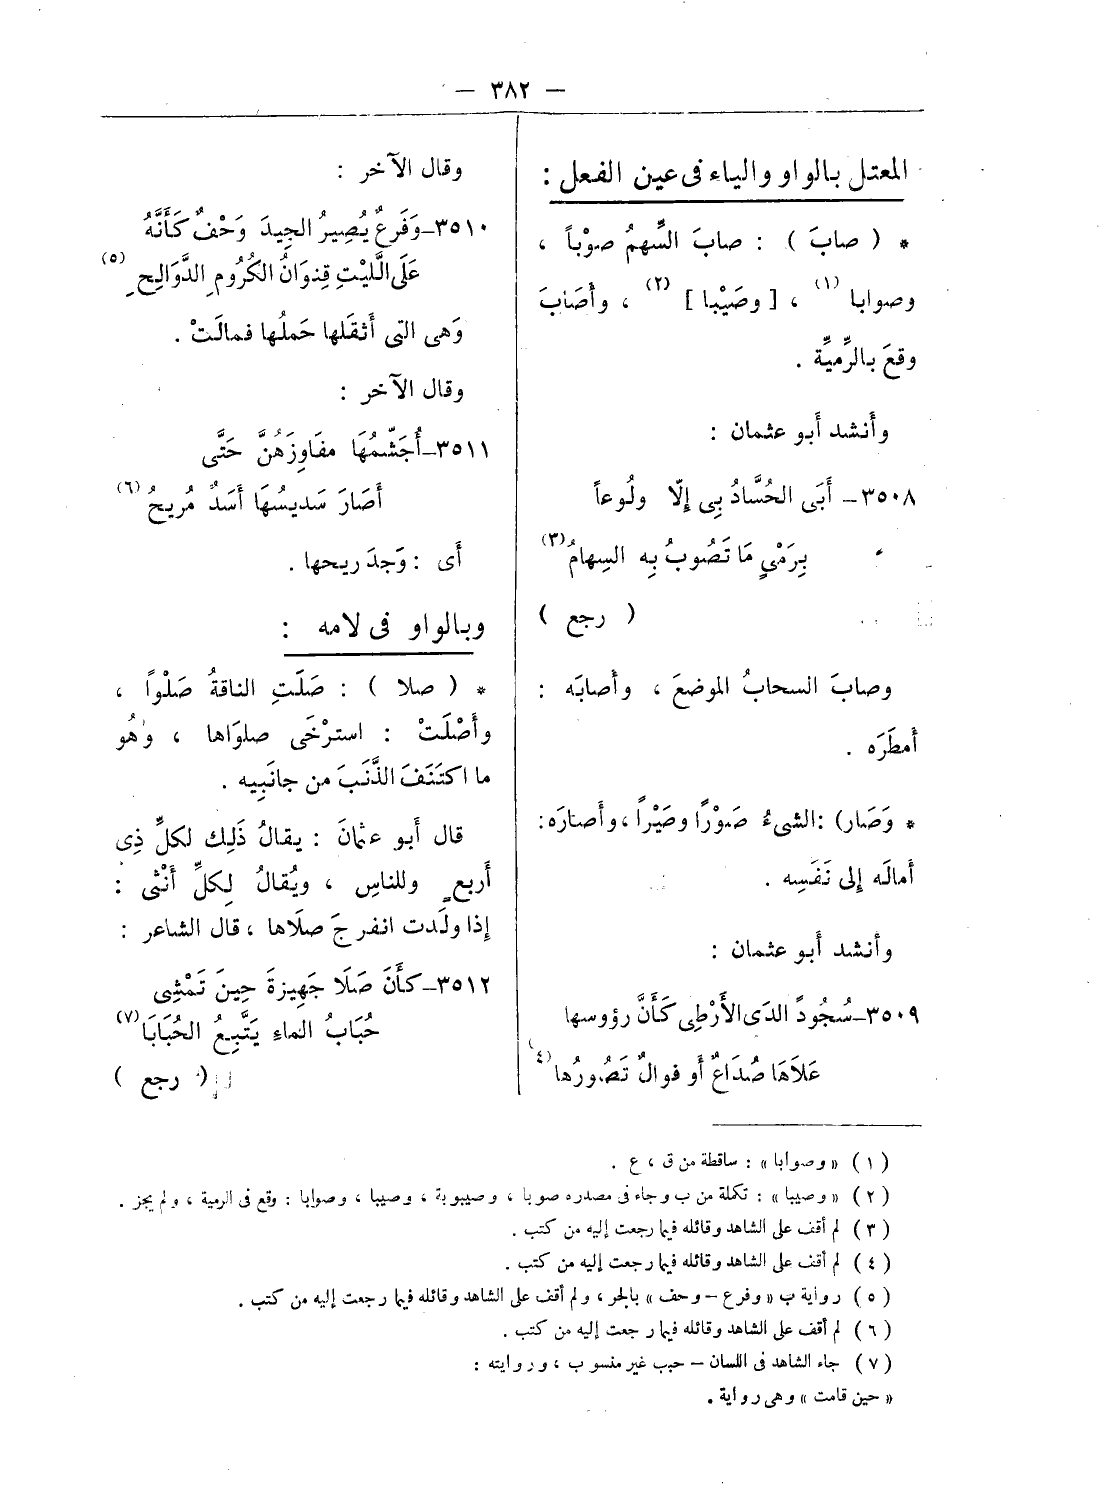 — ٣٨٢ —
المعتل بالواو والياء فى عين الفعل :
* ( صابَ ) : صابَ السَّهمُ صوْباً ،
وصوابا (١) ، [ وصَيْبا ] (٢) ، وأصَابَ
وقعَ بالرَّميِّة .
وأنشد أبو عثمان :
٣٥٠٨ – أَبَى الحُسَّادُ بِى إِلّا ولُوعاً
بِرَمْيٍ مَا تَصُوبُ بِه السِهامُ (٣)
( رجع )
وصابَ السحابُ الموضعَ ، وأصابَه :
أمطَرَه .
* وَصَار) :الشىءُ صَوْرًا وصَيْراً ،وأصارَه:
أمالَه إلى نَفَسِه .
وأنشد أبو عثمان :
٣٥٠٩–سُجُودً الدَى الأَرْطِى كَأَنَّ رؤوسها
عَلاَهَا صُدَاعٌ أو فوالٌ تَصُورُها (٤)
وقال الآخر :
٣٥١٠–وَفَرعٌ يُصِيرُ الجِيدَ وَحْفٌ كَأَنَّهُ
عَلَى الَّليْتِ قِنوَانُ الكُرُومِ الدَّوَالِحِ (٥)
وَهى التى أثقَلها حَملُها فمالَتْ .
وقال الآخر :
٣٥١١–أُجَشِّمُهَا مفَاوِزَهُنَّ حَتَّى
أصَارَ سَديسُهَا أسَدٌ مُريحُ (٦)
أى : وَجدَ ريحها .
وبالواو فى لامه :
* ( صلا ) : صَلَتِ الناقةُ صَلْواً ،
وأَصْلَتْ : استرْخَى صلوَاها ، وهُو
ما اكتَنَفَ الذَّنَبَ من جانَبِيه .
قال أَبو عثمانَ : يقالُ ذَلِك لكلِّ ذِى
أربعٍ وللناسِ ، ويُقالُ لِكلِّ أنْثى :
إذا ولَدت انفرجَ صلَاها ، قال الشاعر :
٣٥١٢–كأَنَ صَلَا جَهِيزةَ حِينَ تَمْشِى
حُبَابُ الماءِ يَتَّبِعُ الحُبَابَا (٧)
( رجع )
( ١ ) « وصوابا » : ساقطة من ق ، ع .
( ٢ ) « وصيبا » : تكملة من ب وجاء فى مصدره صوبا ، وصيبوبة ، وصيبا ، وصوابا : وقع فى الرمية ، ولم يجز .
( ٣ ) لم أقف على الشاهد وقائله فيما رجعت إليه من كتب .
( ٤ ) لم أقف على الشاهد وقائله فيما رجعت إليه من كتب .
( ٥ ) رواية ب « وفرع – وحف » بالجر ، ولم أقف على الشاهد وقائله فيما رجعت إليه من كتب .
( ٦ ) لم أقف على الشاهد وقائله فيما رجعت إليه من كتب .
( ٧ ) جاء الشاهد فى اللسان – حبب غير منسوب ، وروايته :
« حين قامت » وهى رواية .